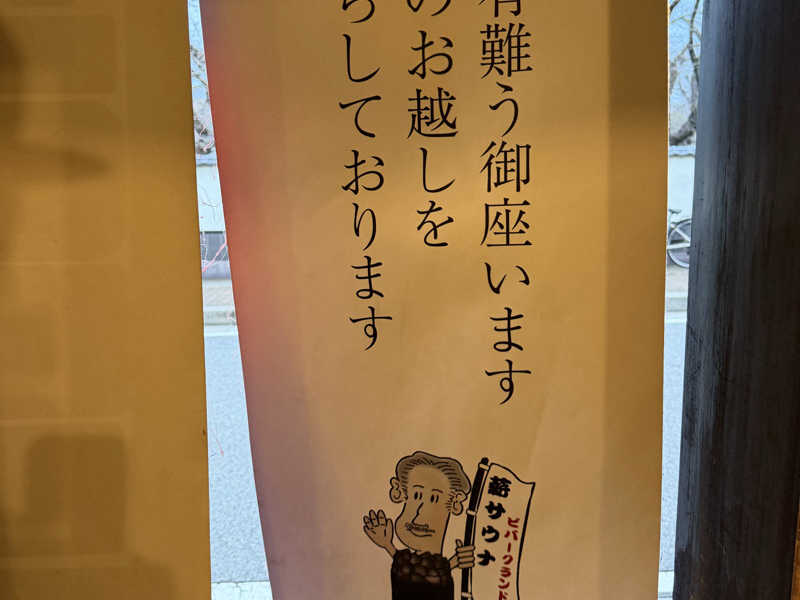 有難う御座います
のお越しを
らしております
薪サウナ
ビバークランド